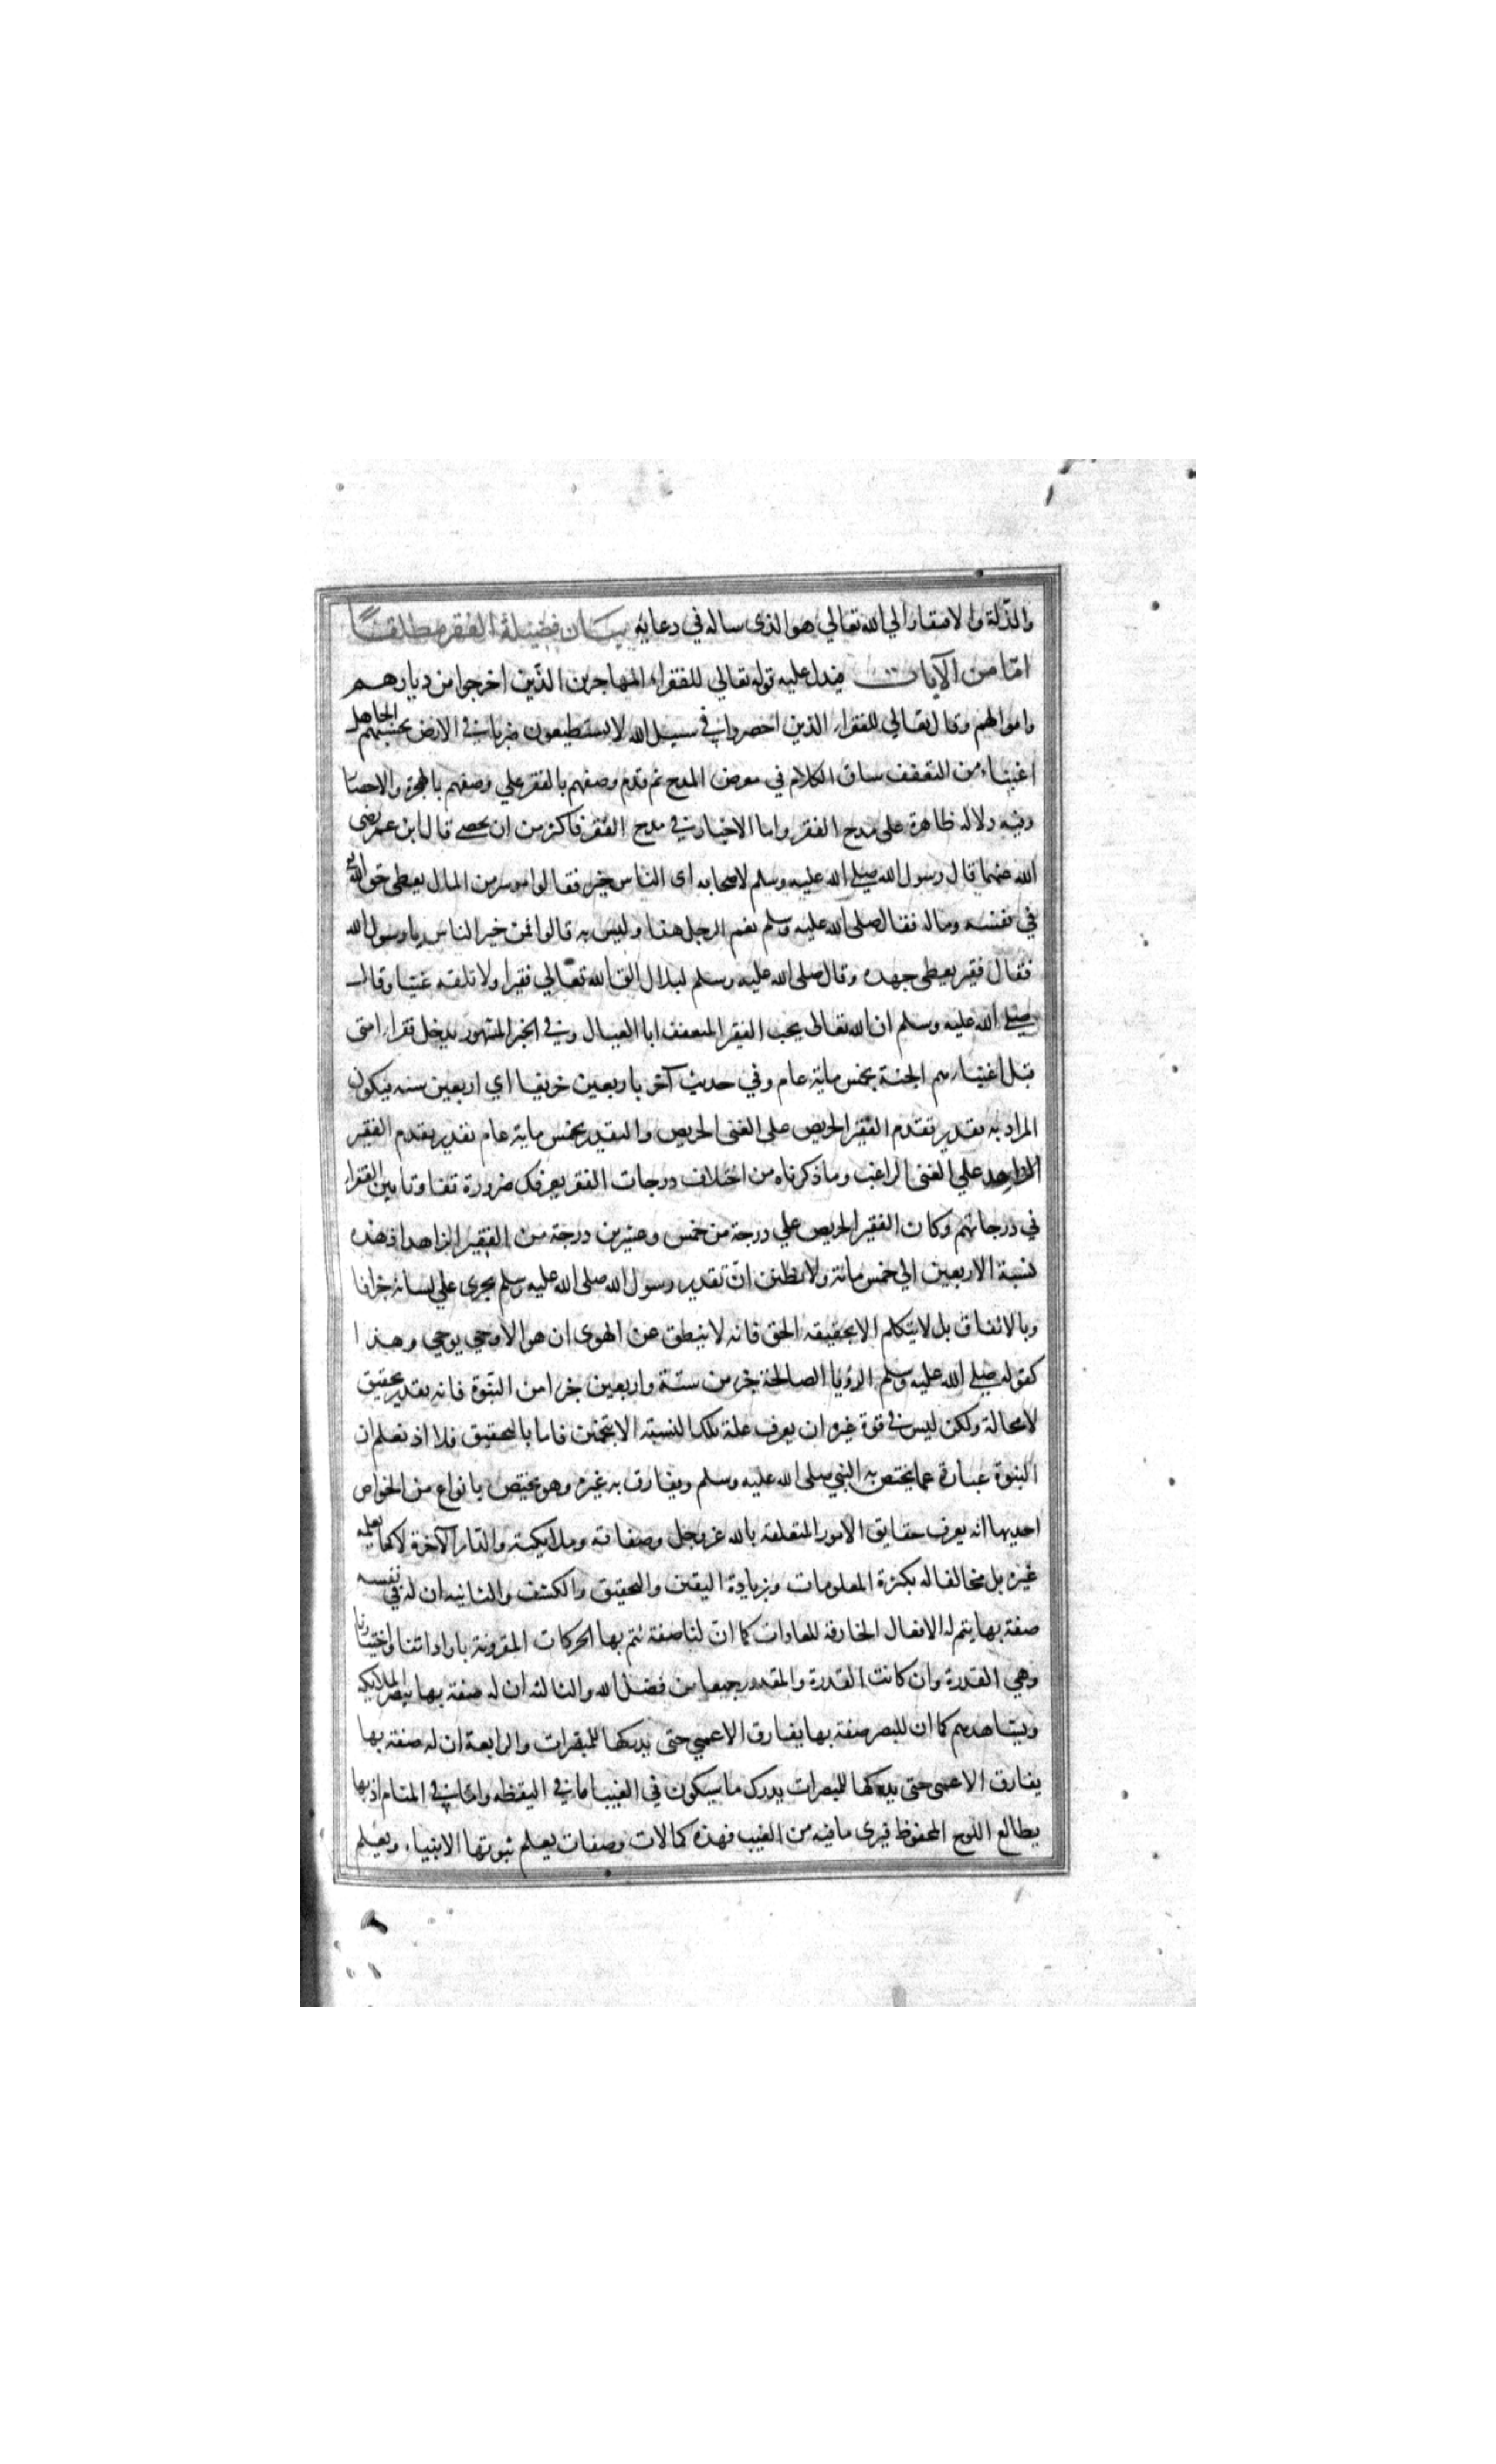 والذلة والافتقار الي الله تعالي هو الذى ساله في دعايه بيان فضيلة الفقر مطلقا
امّا من الآيات فيدل عليه قوله تعالي للفقراء المهاجرين الذين اخرجوا من ديارهم
واموالهم وقال تعالي للفقراء الذين احصروا في سبيل الله لا يستطيعون ضربا في الارض يحسبهم الجاهل
اغنياء من التعفف ساق الكلام في معرض المدح ثم قدم وصفهم بالفقر علي وصفهم بالهجرة والاحصار
وفيه دلاله ظاهرة على مدح الفقر واما الاخبار في مدح الفقر فاكثر من ان يحصى قال ابن عمر رضى
الله عنهما قال رسول الله صلى الله عليه وسلم لاصحابه اى الناس خير فقالوا موسر من المال يعطى حق الله
في نفسه وماله فقال صلى الله عليه وسلم نعم الرجل هذا وليس به قالوا فمن خير الناس يا رسول الله
فقال فقير يعطى جهده وقال صلى الله عليه وسلم لبلال الق الله تعالي فقيرا ولا تلقه غنيا وقال
صلى الله عليه وسلم ان الله تعالى يحب الفقير المتعفف ابا العيال وفي الخبر المشهور يدخل فقراء امتى
قبل اغنيايهم الجنة بخمس ماية عام وفي حديث آخر باربعين خريفا اي اربعين سنه فيكون
المراد به تقدير تقدم الفقير الحريص على الغنى الحريص والتقدير بخمس ماية عام تقدير تقدم الفقير
الزاهد علي الغنى الراغب وما ذكرناه من اختلاف درجات الفقر يعرفك ضرورة تفاوتا بين الفقراء
في درجاتهم وكان الفقير الحريص علي درجة من خمس وعشرين درجة من الفقير الزاهد اذ هذه
نسبة الاربعين الي خمس مائة ولا تظنن انّ تقدير رسول الله صلى الله عليه وسلم يجرى علي لسانه جزافا
وبالاتفاق بل لا يتكلم الا بحقيقه الحق فانه لا ينطق عن الهوى ان هو الا وحي يوحي وهذا
كقوله صلى الله عليه وسلم الرؤيا الصالحة جزء من ستة واربعين جزا من النبوة فانه تقدير تحقيق
لا محالة ولكن ليس في قوة غيره ان يعرف علة تلك النسبة الا بتخمين فاما بالتحقيق فلا اذ تعلم ان
النبوة عبارة عما يختص به النبي صلى الله عليه وسلم ويفارق به غيره وهو يختص بانواع من الخواص
احديها انه يعرف حقايق الامور المتعلقة بالله عز وجل وصفاته وملايكته والدار الآخرة لا كما يعلمه
غيره بل مخالفا له بكثرة المعلومات وبزيادة اليقين والتحقيق والكشف والثانيه ان له في نفسه
صفة بها يتم له الافعال الخارقه للعادات كما انّ لنا صفة تتم بها الحركات المقرونة باراداتنا واختيارنا
وهي القدرة وان كانت القدرة والمقدور جميعا من فضل الله والثالثه ان له صفة بها يبصر الملايكه
ويشاهدهم كما ان للبصر صفة بها يفارق الاعمي حتى يدرك بها المبصرات والرابعة ان له صفة بها
يفارق الاعمى حتى يدرك بها المبصرات يدرك ما سيكون في الغيب اما في اليقظه واما في المنام اذ بها
يطالع اللوح المحفوظ فيرى ما فيه من الغيب فهذه كمالات وصفات يعلم ثبوتها الانبياء ويعلم